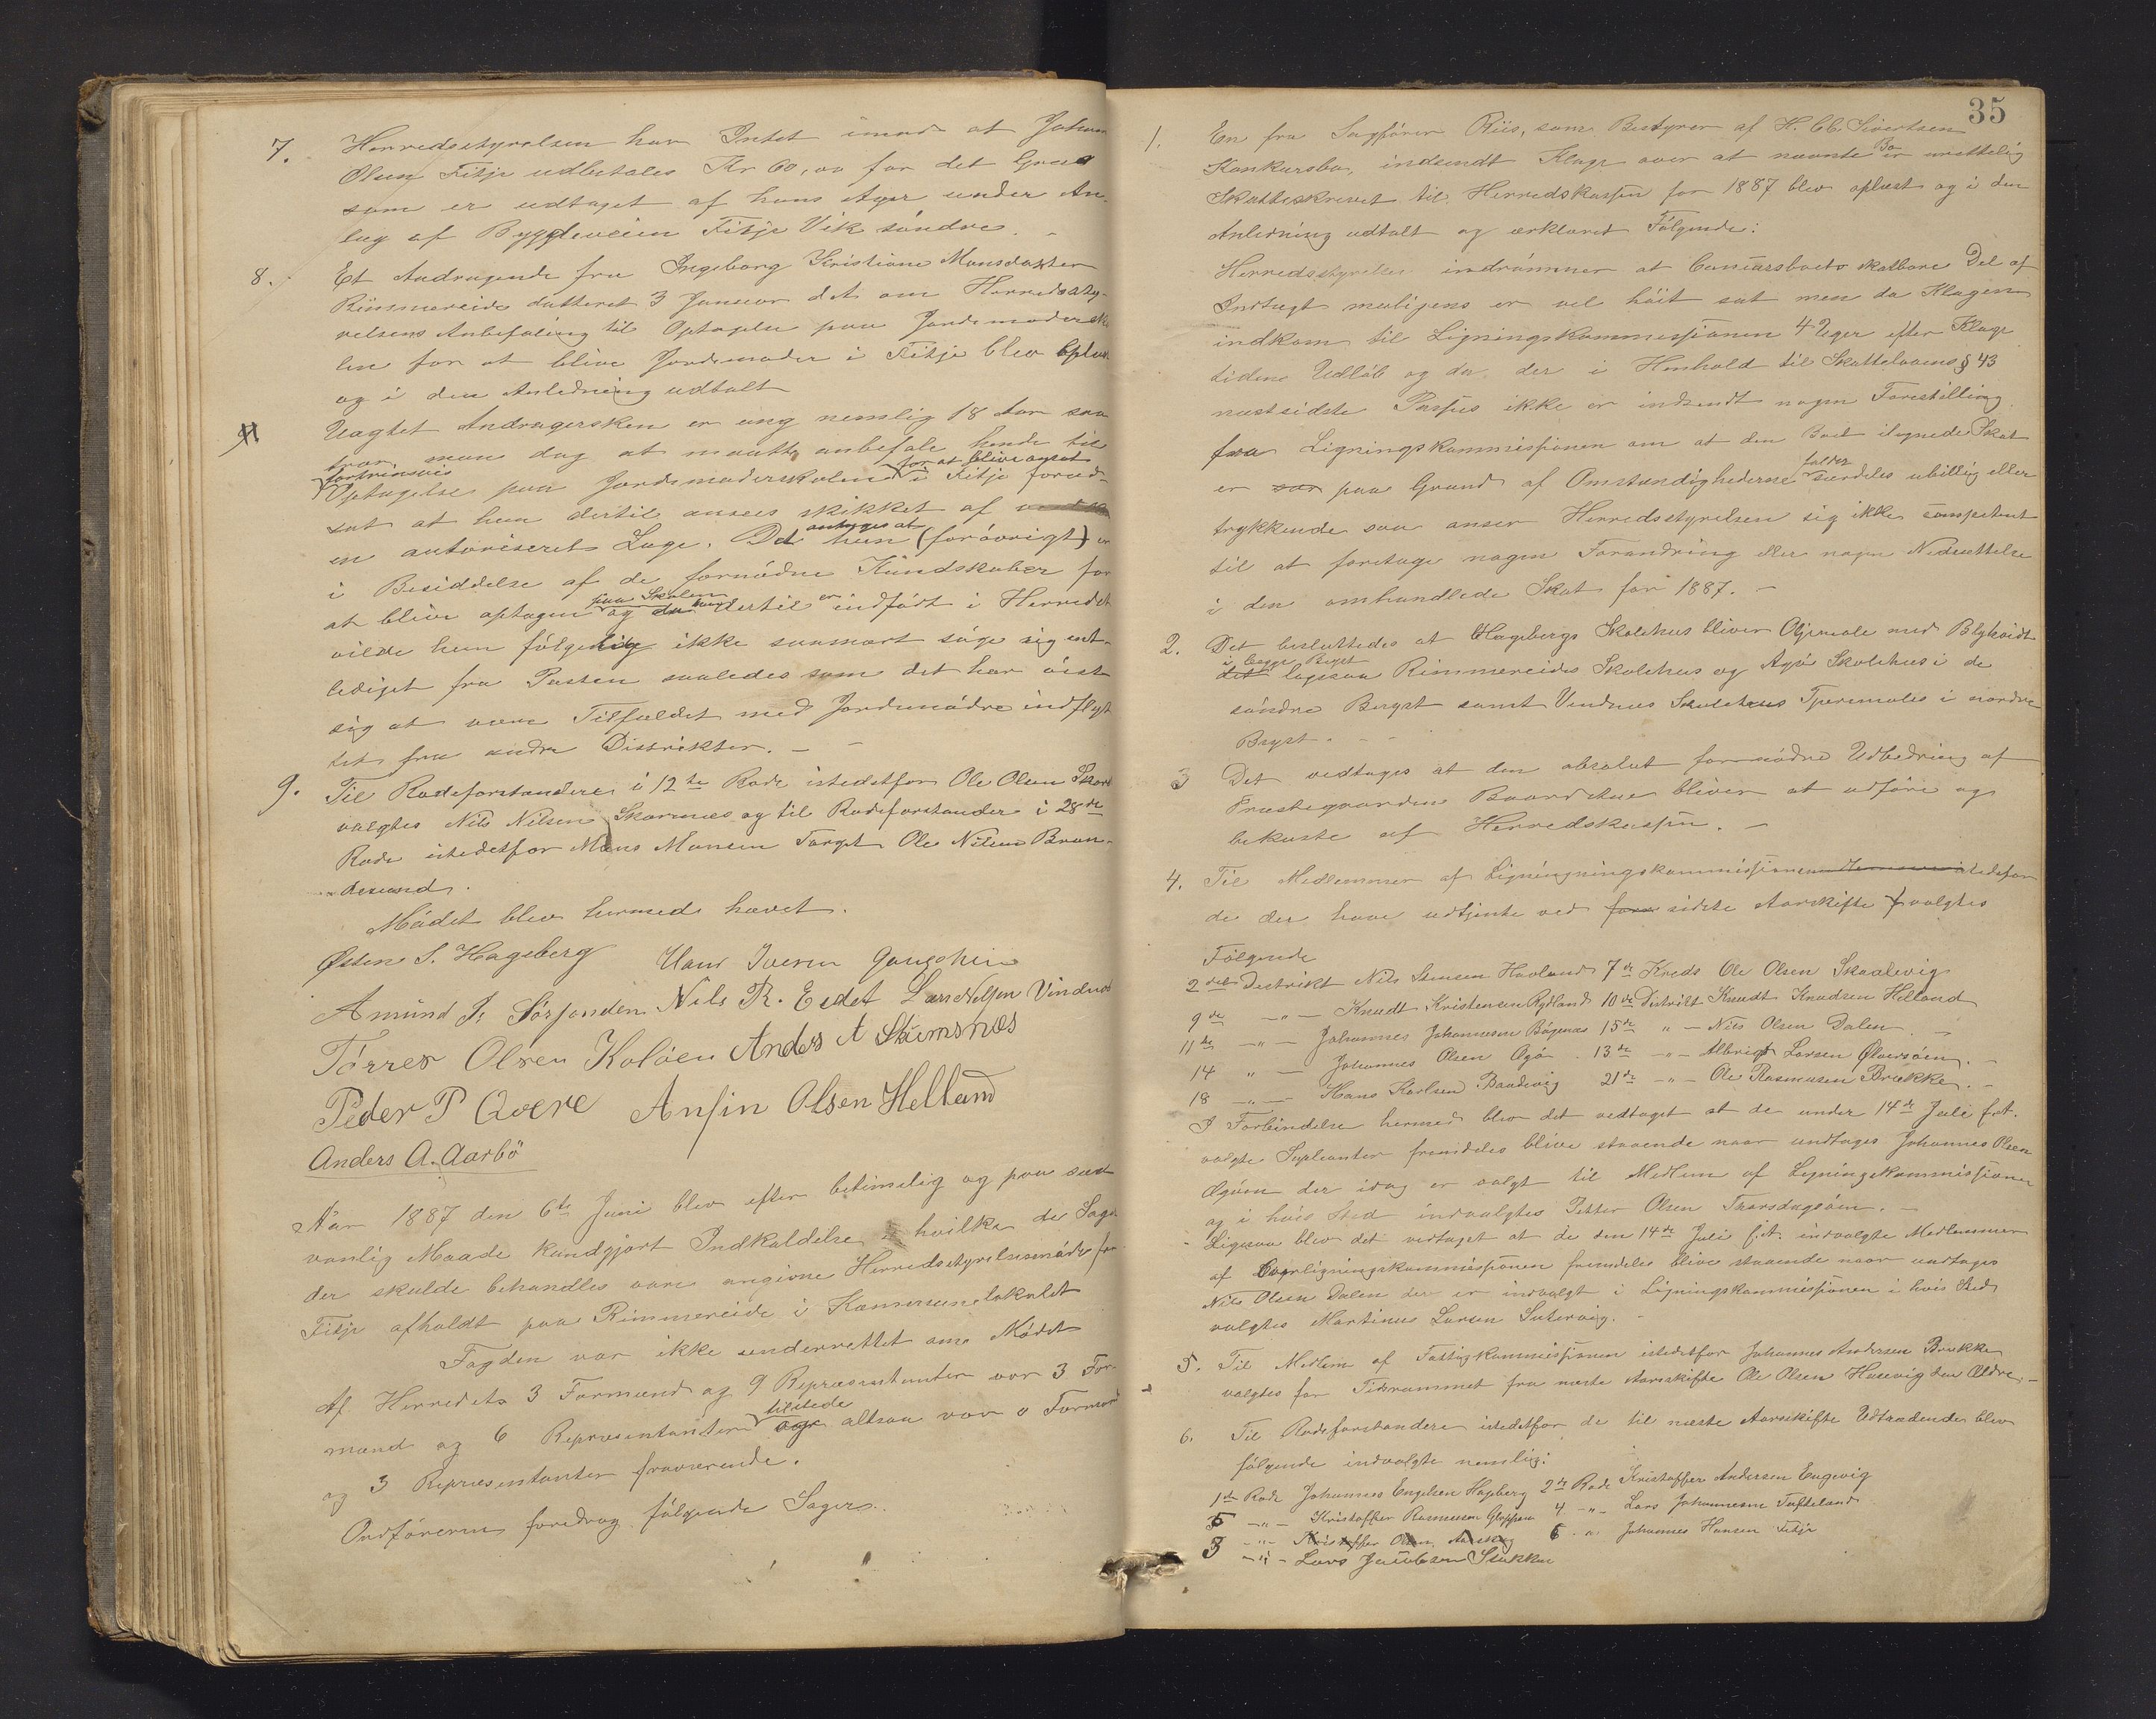 7. Herredsstyrelsen har Intet imod at Johan
Olsen Fitje udbetales Kr 60,00 for det Grus
som er udtaget af hans Ager under An-
læg af Bygdeveien Fitje Vik søndre. -
8. Et Andragende fra Ingeborg Kristiane Monsdatter
Rimmereide datteret 3 Januar d.A. om Herredssty-
relsens Anbefaling til Optagelse paa Jordemodersko
len for at blive Jordemoder i Fitje blev oplæst
og i den Anledning udtalt
Uagtet Andragersken er ung nemlig 18 Aar saa
tror man dog at maatte anbefale hende til
fortrinsvis for at blive ansat
Optagelse paa Jordemoderskolen i Fitje forud-
sat at hun dertil ansees skikket af
en autoriseret Læge. Det antages at hun (forøvrigt) er
i Besiddelse af de fornødne Kundskaber for
at blive optagen paa Skolen og da hun dertil er indfødt i Herredet
vilde hun følgelig ikke saasnart søge sig ent-
lediget fra Posten saaledes som det har vist
sig at være Tilfældet med Jordemødre indflyt
tet fra andre Distrikter. - -
9. Til Rodeforstandere i 12te Rode istedetfor Ole Olsen Skors
valgtes Nils Nilsen Skorsnæs og til Rodeforstander i 28de
Rode istedetfor Mons Monsen Torget Ole Nilsen Bran-
desund.
Mødet blev hermed hævet.
Østen S. Hageberg Hans Iversen
Amund J. Sørfonden Nils R. Eidet Lars Nelsen Vindnes
Tørres Olsen Koløen Anders A Skumsnæs
Peder P Qvere Ansin Olsen Helland
Anders A. Aarbø
Aar 1887 den 6te Juni blev efter betimelig og paa sæd
vanlig Maade kundgjort Indkaldelse i hvilken de Sager
der skulde behandles vare angivne Herredsstyrelsesmøde for
Fitje afholdt paa Rimmereide i Kommunelokalet
Fogden var ikke underrettet om Mødet
Af Herredets 3 Formænd og 9 Repræsentanter var 3 For-
mænd og 6 Repræsentanter tilstede altsaa var 0 Formænd
og 3 Repræsentanter fraværende.
Ordføreren foredrog følgende Sager.
35
1. En fra Sagfører Riis, som Bestyrer af H. Cb. Sivertsen
Konkursbo, indsendt Klage over at nævnte Bo er urettelig
Skatteskrevet til Herredskassen for 1887 blev oplæst og i den
Anledning udtalt og erklæret Følgende:
Herredsstyrelsen indrømmer at Concursboets skatbare Del af
Indtægt muligens er vel høit sat men da Klagen
indkom til Ligningskommissionen 4 Uger efter Klage
tidens Udløb og da der i Henhold til Skattelovens § 43
næstsidste Passus ikke er indsendt nogen Forestilling
fra Ligningskommissionen om at den Boet ilignede Skat
er paa Grund af Omstændighederne falder særdeles ubillig eller
trykkende saa anser Herredsstyrelsen sig ikke competent
til at foretage nogen Forandring eller nogen Nedsættelse
i den omhandlede Skat for 1887. -
2. Det besluttedes at Hagebergs Skolehus bliver Oljemale med Blyhvidt
i begge Bygst
det ligesaa Rimmereides Skolehus og Agø Skolehus i de
søndre Bygst samt Vindnæs Skolehus Tjæremales i nordre
Bygst. - -
3 Det vedtages at den absolut fornødne Udbedring af
Præstegaardens Baardstue bliver at udføre og
bekoste af Herredskassen. -
4. Til Medlemmer af Ligningningskommissionen istedetfor
de der have udtjente ved sidste Aarskifte valgtes
Følgende
2det Distrikt Nils Steneen Havland 7de Kreds Ole Olsen Skaalevig
9de -"- Knudt Kristensen Rydland 10de Distrikt Knudt Knudsen Helland
11te -"- Johannes Johannesen Bøgenæs 15de " - Nils Olsen Dalen -
14 " - Johannes Olsen Agø . 13de -"- Albrigt Larsen Økersøen. -
18 -"- Hans Karlsen Baadsvig 21de -"- Ole Rasmusen Brække. -
I Forbindelse hermed blev det vedtaget at de under 14de Juli f.A.
valgte Supleanter fremdeles blive staaende naar undtages Johannes Olsen
Agøen der idag er valgt til Medlem af Ligningskommissionen
og i hvis Sted indvalgtes Petter Olsen Thorsdagsøen. -
Ligesaa blev det vedtaget at de den 14de Juli f.A. indvalgte Medlemmer
af Overligningskommissionen fremdeles blive staaende naar undtages
Nils Olsen Dalen der er indvalgt i Ligningskommissionen i hvis Sted
valgtes Martinus Larsen Sætervig. -
5. Til Medlem af Fattigkommissionen istedetfor Johannes Andersen Brække
valgtes for Tidsrummet fra næste Aarsskifte Ole Olsen Husevig den Ældre. -
6. Til Rodeforstandere istedetfor de til næste Aarsskifte Udtrædende blev
følgende indvalgte nemlig:
1ste Rode Johannes Engelsen Hageberg 2de Rode Kristoffer Andersen Engevig
5 -"- Kristoffer Rasmusen Gloppen 4 -"- Lars Johannesen Tufteland
-"- Kristoffer Olsen Aarskog 6 . " Johannes Hansen Fitje
3 -"- Lars Jacobsen Stokken